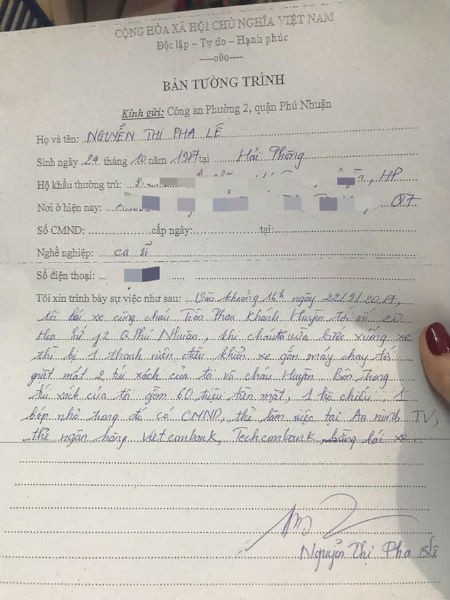 CỘNG HÒA XÃ HỘI CHỦ NGHĨA VIỆT NAM
Độc lập – Tự do – Hạnh phúc
----o0o----
BẢN TƯỜNG TRÌNH
Kính gửi: Công an Phường 2, quận Phú Nhuận
Họ và tên: NGUYỄN THỊ PHA LÊ
Sinh ngày 24 tháng 10 năm 1987 tại Hải Phòng
Hộ khẩu thường trú: HP
Nơi ở hiện nay: Q7
Số CMND: cấp ngày: tại:
Nghề nghiệp: ca sĩ
Số điện thoại:
Tôi xin trình bày sự việc như sau: Vào khoảng 14h ngày 22/9/2017,
tôi lái xe cùng cháu Trần Phan Khánh Huyền tới số 20
Hoa Sứ p2 Q Phú Nhuận, khi cháu vừa bước xuống xe
thì bị 1 thanh niên điều khiển xe gắn máy chạy tới
giật mất 2 túi xách của tôi và cháu Huyền. Bên trong
túi xách của tôi gồm 60 triệu tiền mặt, 1 hộ chiếu, 1
bóp nhỏ trong đó có CMND, thẻ làm việc tại An ninh TV,
thẻ ngân hàng Vietcombank, Techcombank, bằng lái xe
Nguyễn Thị Pha Lê